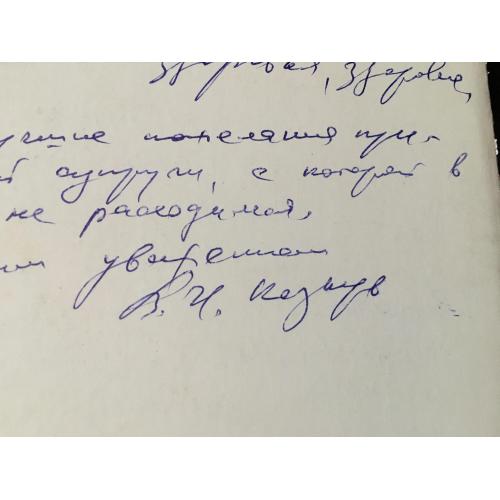 здоровья, здоровья,
учшие пожелания при-
й супруги, с которой в
не расходимся.
им уважением
В.И. Козырев